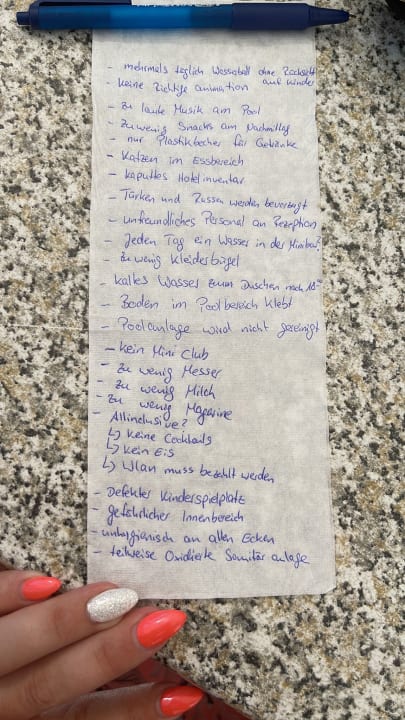 - mehrmals täglich Wasserball ohne Rücksicht
auf Kinder
- keine richtige animation
- zu laute Musik am Pool
- zu wenig Snacks am Nachmittag
- nur Plastikbecher für Getränke
- Katzen im Essbereich
- kaputtes Hotelinventar
- Türken und Russen werden bevorzugt
- unfreundliches Personal an Rezeption
- Jeden Tag ein Wasser in der Minibar
- zu wenig Kleiderbügel
- kaltes Wasser zum Duschen nach
- Boden im Poolbereich klebt
- Poolanlage wird nicht gereinigt
- kein Mini Club
- zu wenig Messer
- zu wenig Milch
- zu wenig Magarine
- Allinclusive?
↳ keine Cocktails
↳ kein Eis
↳ Wlan muss bezahlt werden
- Defekter Kinderspielplatz
- gefährlicher Innenbereich
- unhygienisch an allen Ecken
- teilweise Oxidierte Sanitär anlage